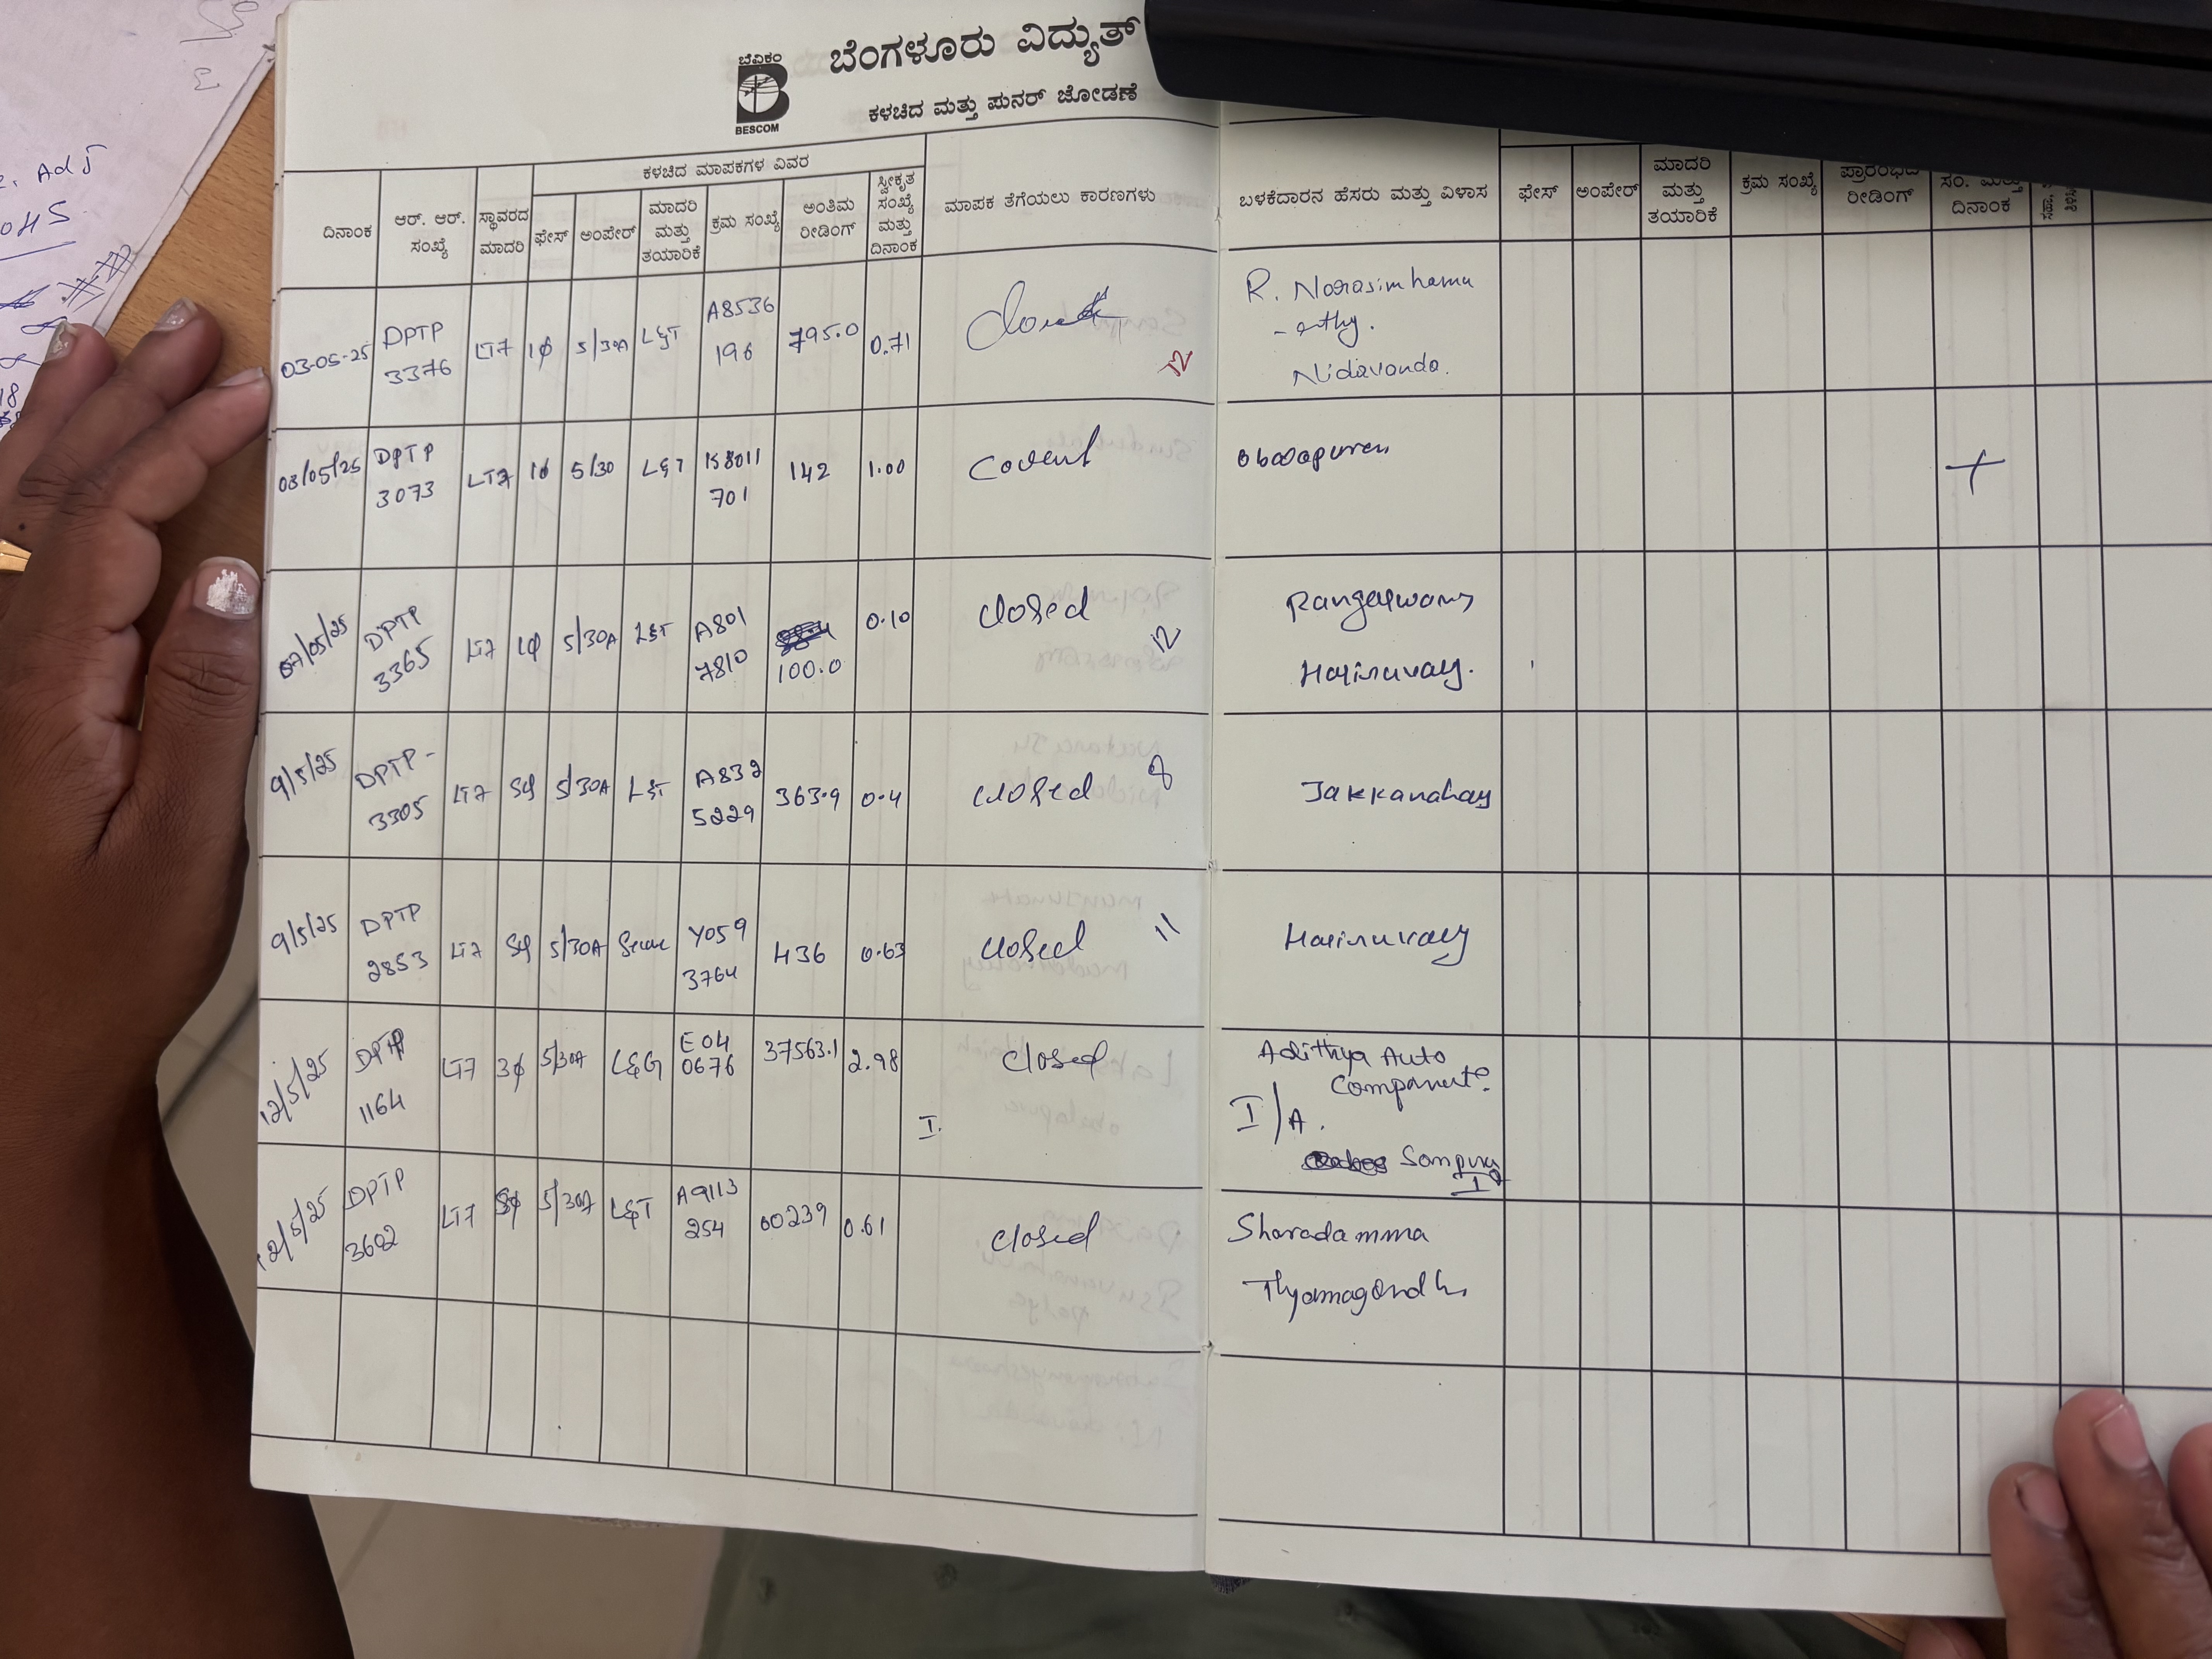 e, Adj
ಬೆವಿಕಂ
BESCOM
ಬೆಂಗಳೂರು ವಿದ್ಯುತ್
ಕಳಚಿದ ಮತ್ತು ಪುನರ್ ಜೋಡಣೆ
ಕಳಚಿದ ಮಾಪಕಗಳ ವಿವರ
ದಿನಾಂಕ ಆರ್. ಆರ್. ಸಂಖ್ಯೆ ಸ್ಥಾವರದ ಮಾದರಿ ಫೇಸ್ ಅಂಪೇರ್ ಮಾದರಿ ಮತ್ತು ತಯಾರಿಕೆ ಕ್ರಮ ಸಂಖ್ಯೆ ಅಂತಿಮ ರೀಡಿಂಗ್ ಸ್ವೀಕೃತ ಸಂಖ್ಯೆ ಮತ್ತು ದಿನಾಂಕ ಮಾಪಕ ತೆಗೆಯಲು ಕಾರಣಗಳು ಬಳಕೆದಾರನ ಹೆಸರು ಮತ್ತು ವಿಳಾಸ ಫೇಸ್ ಅಂಪೇರ್ ಮಾದರಿ ಮತ್ತು ತಯಾರಿಕೆ ಕ್ರಮ ಸಂಖ್ಯೆ ಪ್ರಾರಂಭದ ರೀಡಿಂಗ್ ಸಂ. ಮತ್ತು ದಿನಾಂಕ
03-05-25 DPTP LT7 1φ 5/30A L&T A8536 795.0 0.71 R. Narasimhamu
3376 196 - arthy.
Nidavanda.
03/05/25 DPTP LT7 1φ 5/30 L&T 142 1.00
3073 701
07/05/25 DPTP LT7 1φ 5/30A L&T A801 0.10 closed 12
3365 7810 100.0
9/5/25 DPTP- LT7 5/30A L&T A832 363.9 0.4 closed 8
3305 5229
9/5/25 DPTP LT7 5/30A Y059 436 0.63 closed 11
2853 3764
12/5/25 DPTP LT7 3φ 5/30A L&G E04 37563.1 2.98 closed Adithya Auto
1164 0676 Components
I. I/A.
Sompura
I
12/5/25 DPTP LT7 5/30A L&T A9113 00239 0.61 closed Sharadamma
3602 254